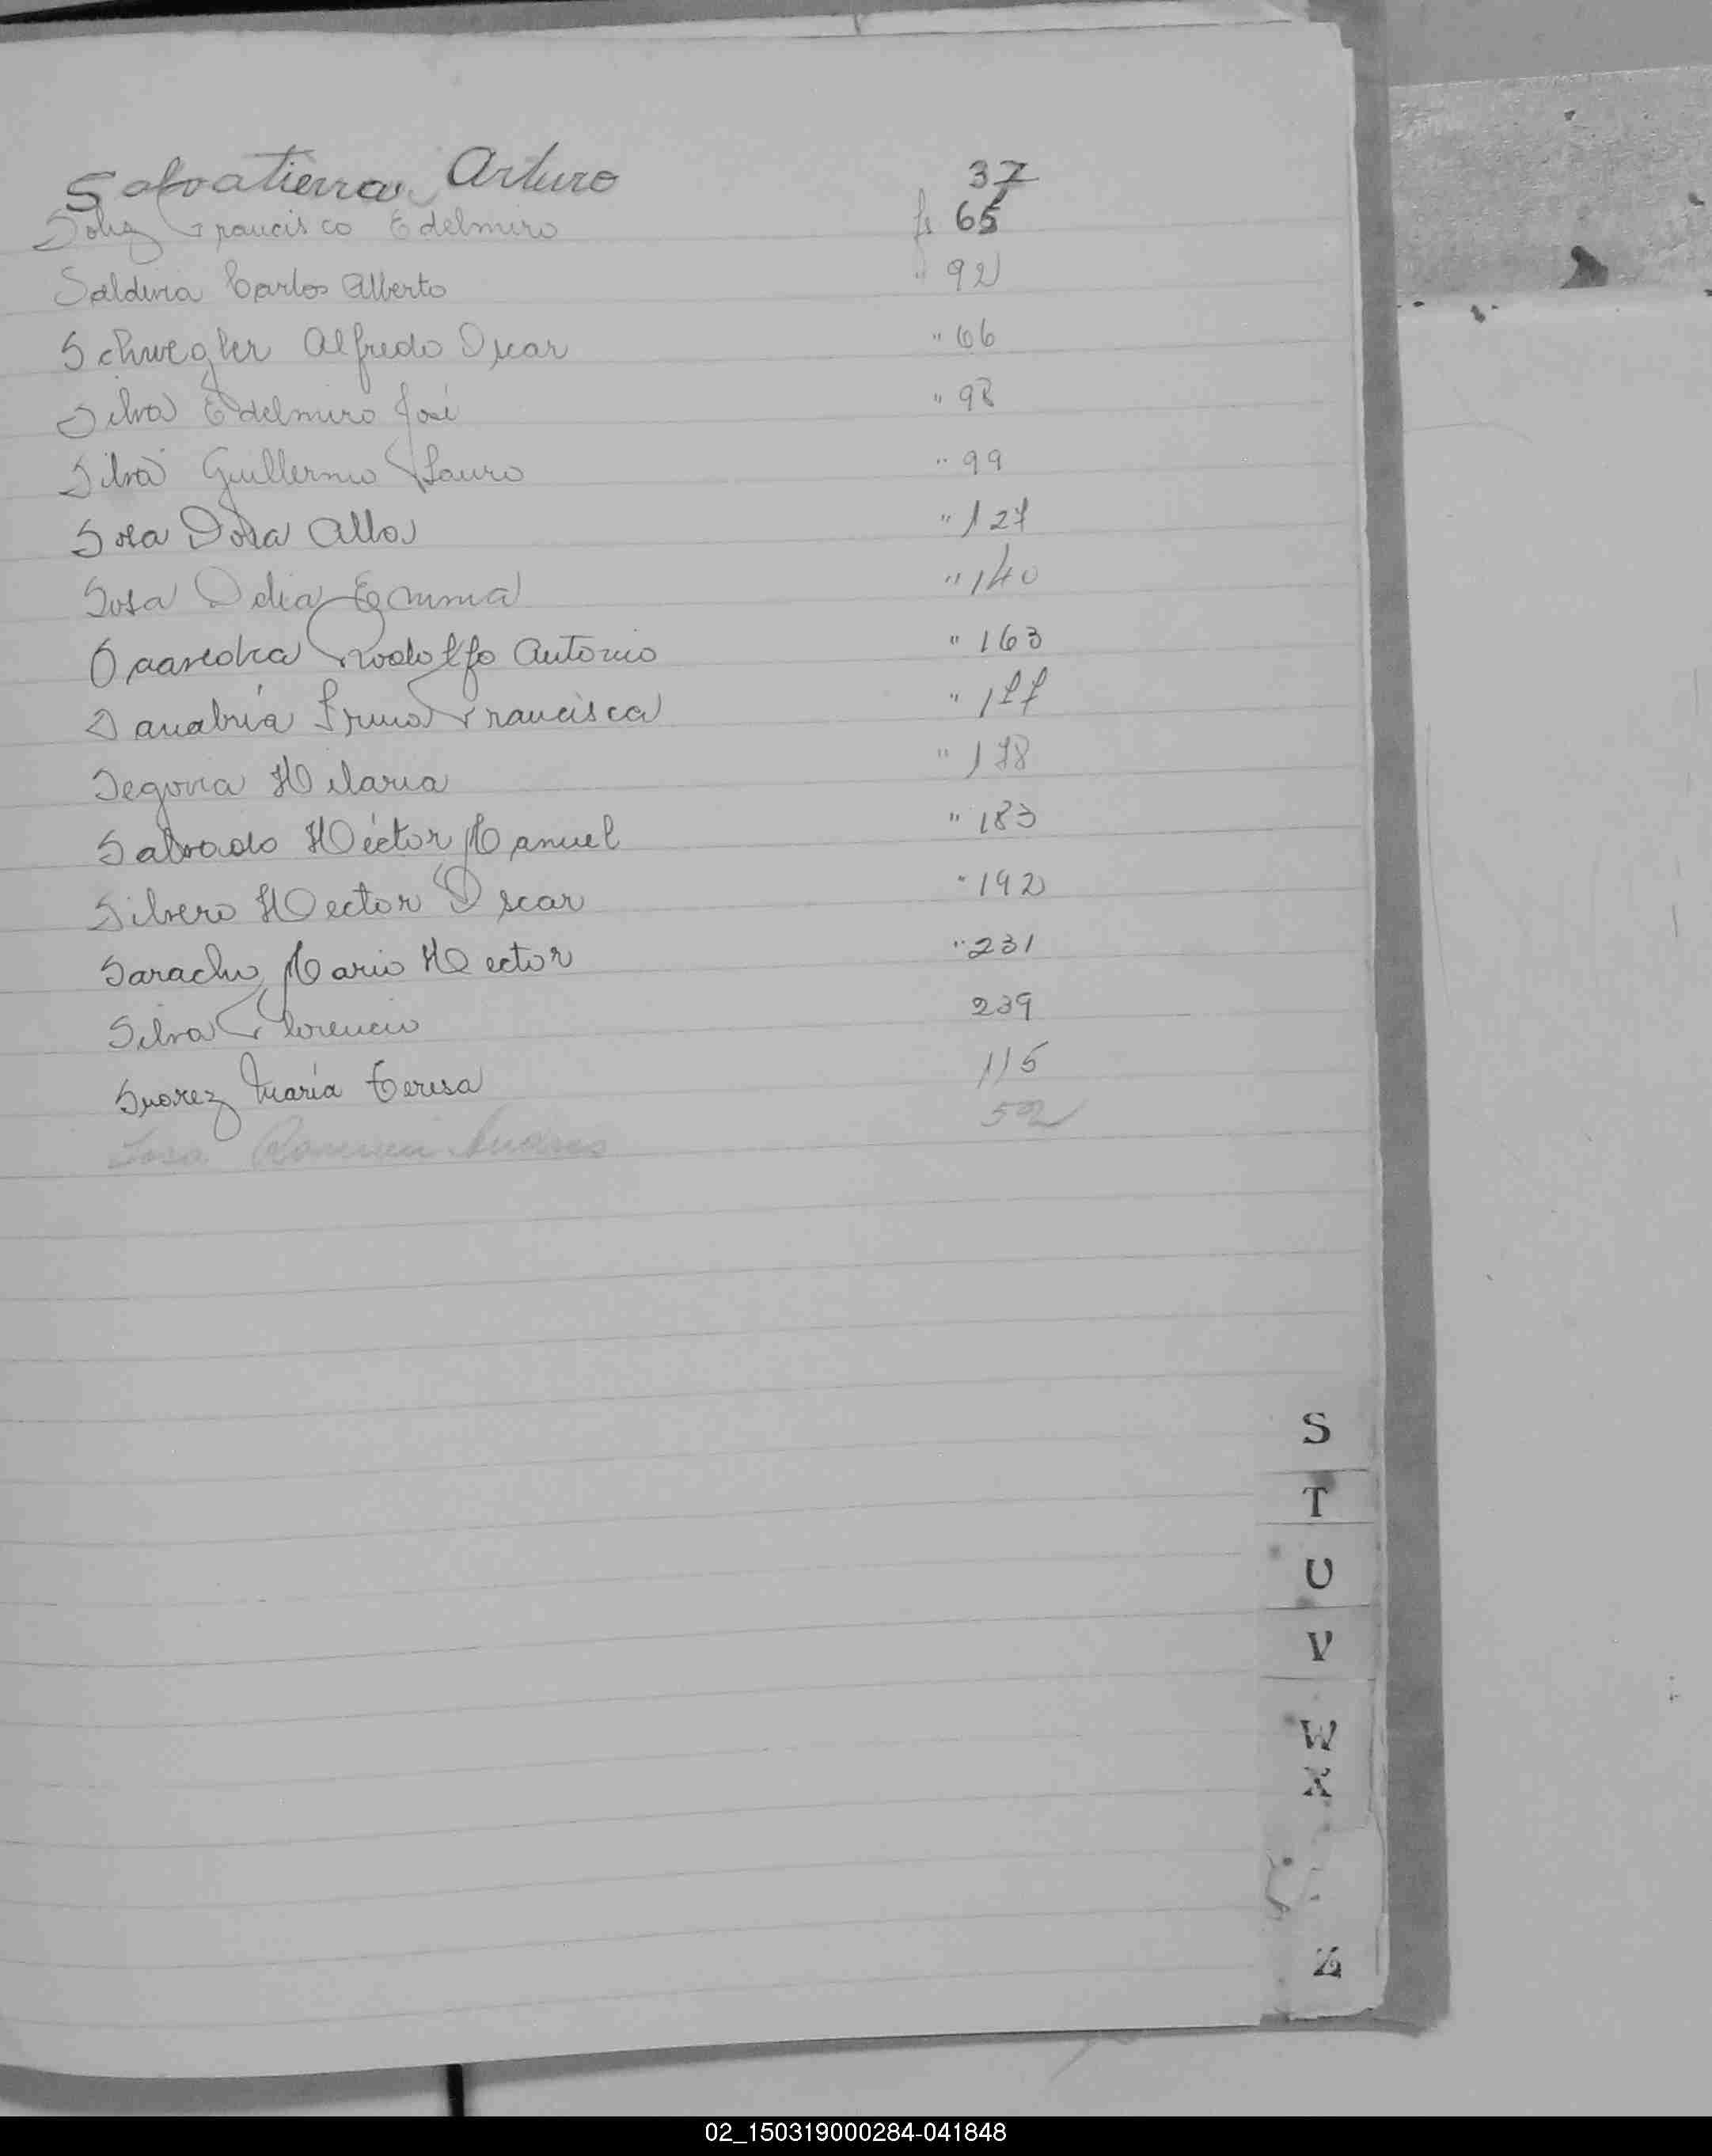 Salvatierra Arturo 37
Soliz Francisco Edelmiro fs 65
Saldivia Carlos Alberto " 92
Schwegler Alfredo Oscar " 66
Silva Edelmiro José " 98
Silva Guillermo Lauro " 99
Sosa Dora Alba " 127
Sosa Delia Emma " 140
Saavedra Rodolfo Antonio " 163
Sanabria Irma Francisca " 177
Segovia Hilaria " 178
Salvado Héctor Manuel " 183
Silvero Hector Oscar " 192
Saracho Mario Hector " 231
Silva Florencio 239
Suarez María Teresa 115
Sosa 52
S
T
U
V
W
X
Z
02_150319000284-041848